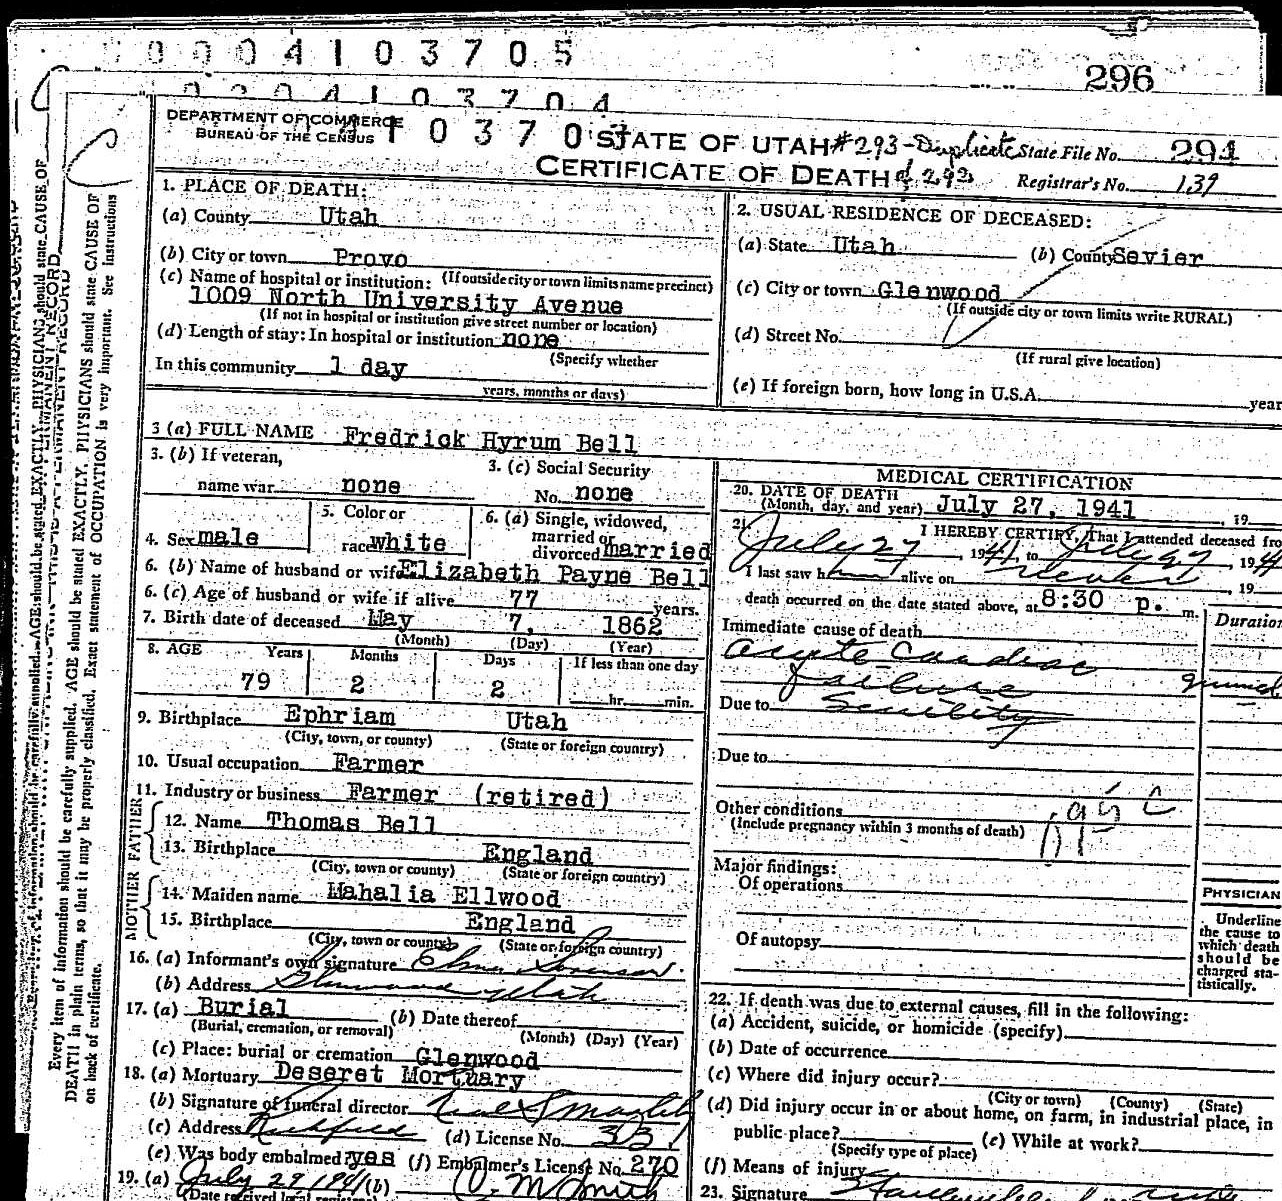 0004103705
296
0004103704
DEPARTMENT OF COMMERCE
BUREAU OF THE CENSUS
10370
STATE OF UTAH #293-Duplicate
of 293
CERTIFICATE OF DEATH
State File No. 294
Registrar's No. 139
1. PLACE OF DEATH:
(a) County Utah
(b) City or town Provo
(If outside city or town limits name precinct)
(c) Name of hospital or institution:
1009 North University Avenue
(If not in hospital or institution give street number or location)
(d) Length of stay: In hospital or institution none
(Specify whether
In this community 1 day
years, months or days)
2. USUAL RESIDENCE OF DECEASED:
(a) State Utah (b) County Sevier
(c) City or town Glenwood
(If outside city or town limits write RURAL)
(d) Street No.
(If rural give location)
(e) If foreign born, how long in U.S.A. year
3 (a) FULL NAME Fredrick Hyrum Bell
3. (b) If veteran,
name war none
3. (c) Social Security
No. none
4. Sex male
5. Color or
race white
6. (a) Single, widowed,
married or
divorced married
6. (b) Name of husband or wife Elizabeth Payne Bell
6. (c) Age of husband or wife if alive 77 years.
7. Birth date of deceased May 7, 1862
(Month) (Day) (Year)
8. AGE Years Months Days If less than one day
79 2 2 hr. min.
9. Birthplace Ephriam Utah
(City, town, or county) (State or foreign country)
10. Usual occupation Farmer
11. Industry or business Farmer (retired)
FATHER
12. Name Thomas Bell
13. Birthplace England
(City, town or county) (State or foreign country)
MOTHER
14. Maiden name Mahalia Ellwood
15. Birthplace England
(City, town or county) (State or foreign country)
16. (a) Informant's own signature Elmer Sorensen
(b) Address Glenwood Utah
17. (a) Burial (b) Date thereof
(Burial, cremation, or removal) (Month) (Day) (Year)
(c) Place: burial or cremation Glenwood
18. (a) Mortuary Deseret Mortuary
(b) Signature of funeral director
(c) Address Richfield (d) License No. 331
(e) Was body embalmed? yes (f) Embalmer's License No. 270
19. (a) July 29 1941 (b) O. M. Smith
(Date received local registrar)
MEDICAL CERTIFICATION
20. DATE OF DEATH
(Month, day, and year) July 27, 1941, 19
21. I HEREBY CERTIFY, That I attended deceased fro
July 27, 1941, to July 27, 194
I last saw h alive on never, 19
death occurred on the date stated above, at 8:30 p. m.
Duration
Immediate cause of death
acute cardiac
failure
Due to Senility
Due to
Other conditions
(Include pregnancy within 3 months of death)
Major findings:
Of operations
Of autopsy
PHYSICIAN
Underline
the cause to
which death
should be
charged sta-
tistically.
22. If death was due to external causes, fill in the following:
(a) Accident, suicide, or homicide (specify)
(b) Date of occurrence
(c) Where did injury occur?
(City or town) (County) (State)
(d) Did injury occur in or about home, on farm, in industrial place, in
public place? (e) While at work?
(Specify type of place)
(f) Means of injury
23. Signature
Every item of information should be carefully supplied. AGE should be stated EXACTLY. PHYSICIANS should state CAUSE OF
DEATH in plain terms, so that it may be properly classified. Exact statement of OCCUPATION is very important. See instructions
on back of certificate.